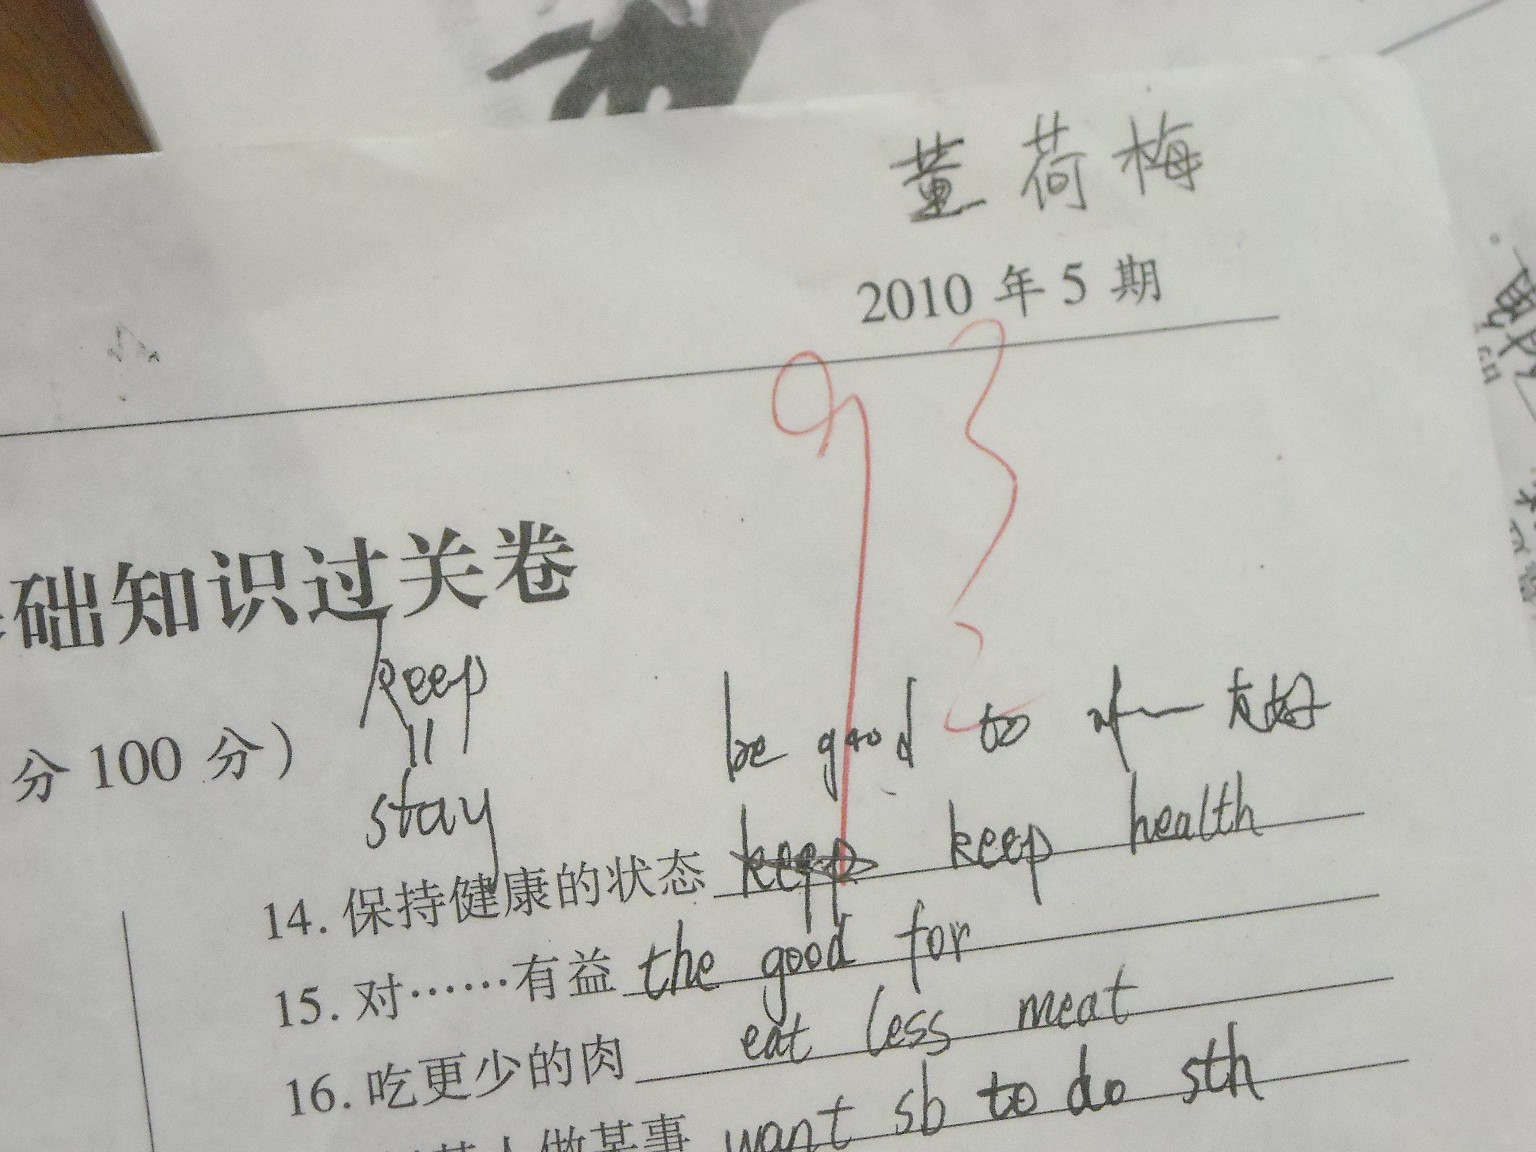 董荷梅
2010 年 5 期
93
2
础知识过关卷
keep
分 100 分）
be good to 友好
stay
14. 保持健康的状态 keep keep health
15. 对……有益 the good for
16. 吃更少的肉 eat less meat
人做某事 want sb to do sth